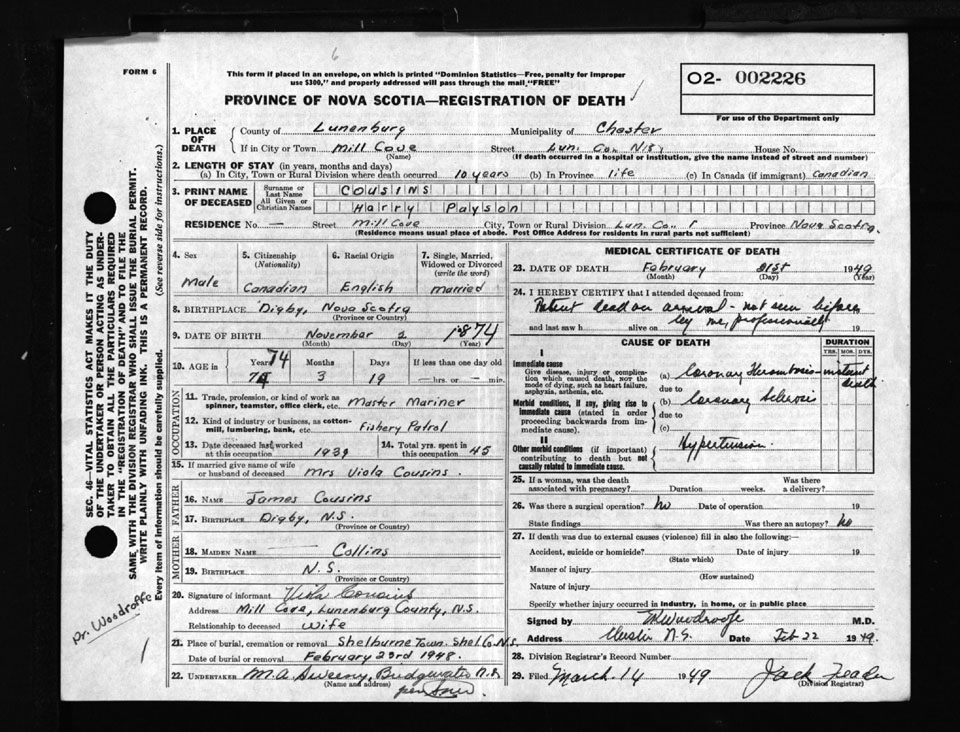 6
FORM 6
This form if placed in an envelope, on which is printed "Dominion Statistics—Free, penalty for improper
use $300," and properly addressed will pass through the mail "FREE"
O2- 002226
PROVINCE OF NOVA SCOTIA—REGISTRATION OF DEATH
For use of the Department only
1. PLACE OF DEATH
County of Lunenburg Municipality of Chester
If in City or Town Mill Cove Street Lun. Con House No.
(Name) (If death occurred in a hospital or institution, give the name instead of street and number)
2. LENGTH OF STAY (in years, months and days)
(a) In City, Town or Rural Division where death occurred 10 years (b) In Province life (c) In Canada (if immigrant) Canadian
3. PRINT NAME OF DECEASED
Surname or Last Name COUSINS
All Given or Christian Names Harry Payson
RESIDENCE No. — Street Mill Cove City, Town or Rural Division Lun. Con Province Nova Scotia
(Residence means usual place of abode. Post Office Address for residents in rural parts not sufficient)
4. Sex Male
5. Citizenship (Nationality) Canadian
6. Racial Origin English
7. Single, Married, Widowed or Divorced (write the word) married
8. BIRTHPLACE Digby, Nova Scotia
(Province or Country)
9. DATE OF BIRTH November 2 1874
(Month) (Day) (Year)
10. AGE in Years 74 Months 3 Days 19 If less than one day old — hrs. or — min.
OCCUPATION
11. Trade, profession, or kind of work as spinner, teamster, office clerk, etc. Master Mariner
12. Kind of industry or business, as cotton-mill, lumbering, bank, etc. Fishery Patrol
13. Date deceased last worked at this occupation 1939
14. Total yrs. spent in this occupation 45
15. If married give name of wife or husband of deceased Mrs Viola Cousins.
FATHER
16. NAME James Cousins
17. BIRTHPLACE Digby, N.S.
(Province or Country)
MOTHER
18. MAIDEN NAME Collins
19. BIRTHPLACE N.S.
(Province or Country)
20. Signature of informant Cousins
Address Mill Cove, Lunenburg County, N.S.
Relationship to deceased Wife
21. Place of burial, cremation or removal Shelburne Town. Shel Co. N.S.
Date of burial or removal February 23rd 1948.
22. UNDERTAKER M.A. Sweeny, Bridgewater N.S.
(Name and address)
per
MEDICAL CERTIFICATE OF DEATH
23. DATE OF DEATH February 21st 1949
(Month) (Day) (Year)
24. I HEREBY CERTIFY that I attended deceased from:
Patient dead on arrival – not seen before
and last saw h alive on by me, professionally 19
CAUSE OF DEATH
DURATION
YRS. MOS. DYS.
I
Immediate cause
Give disease, injury or complication which caused death, not the mode of dying, such as heart failure, asphyxia, asthenia, etc.
(a) Coronary Thrombosis – instant death
due to
Morbid conditions, if any, giving rise to immediate cause (stated in order proceeding backwards from immediate cause).
(b) Coronary Sclerosis
due to
(c)
II
Other morbid conditions (if important) contributing to death but not causally related to immediate cause.
Hypertension.
25. If a woman, was the death associated with pregnancy? Duration weeks. Was there a delivery?
26. Was there a surgical operation? No Date of operation 19
State findings Was there an autopsy? No
27. If death was due to external causes (violence) fill in also the following:—
Accident, suicide or homicide? Date of injury 19
(State which)
Manner of injury
(How sustained)
Nature of injury
Specify whether injury occurred in industry, in home, or in public place
Signed by Woodroofe M.D.
Address Chester N.S. Date Feb 22 1949.
28. Division Registrar's Record Number
29. Filed March 14 1949 Jack
(Division Registrar)
SEC. 46—VITAL STATISTICS ACT MAKES IT THE DUTY
OF THE UNDERTAKER OR PERSON ACTING AS UNDER-
TAKER TO OBTAIN ALL THE PARTICULARS REQUIRED
IN THE "REGISTRATION OF DEATH" AND TO FILE THE
SAME WITH THE DIVISION REGISTRAR WHO SHALL ISSUE THE BURIAL PERMIT.
WRITE PLAINLY WITH UNFADING INK. THIS IS A PERMANENT RECORD.
Every item of information should be carefully supplied. (See reverse side for instructions.)
Dr. Woodroffe